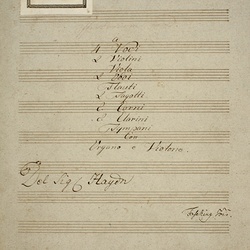 a
4 Voci
2 Violini
Viola
2 Oboi
Flauti
2 Fagotti
2 Corni
2 Clarini
Tympani
Con
Organo e Violone.
Del Sig Haydn